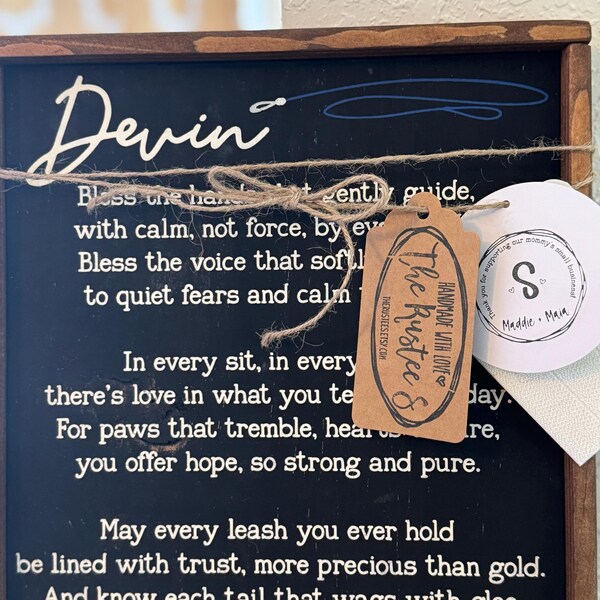 Devin
Bless the hands that gently guide,
with calm, not force, by
Bless the voice that
to quiet fears and calm
In every sit, in every
there's love in what you day.
For paws that tremble,
you offer hope, so strong and pure.
May every leash you ever hold
be lined with trust, more precious than gold.
And know each tail that wags with glee
HANDMADE WITH LOVE
The Rustee S
THERUSTEES.ETSY.COM
Thank you for supporting our mommy's small business!
S
Maddie + Maia